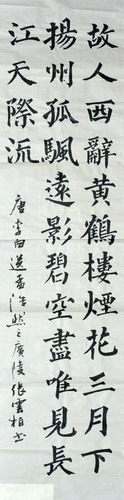 故人西辭黃鶴樓煙花三月下
揚州孤颿遠影碧空盡唯見長
江天際流
唐李白送孟浩然之廣陵張雲柏書